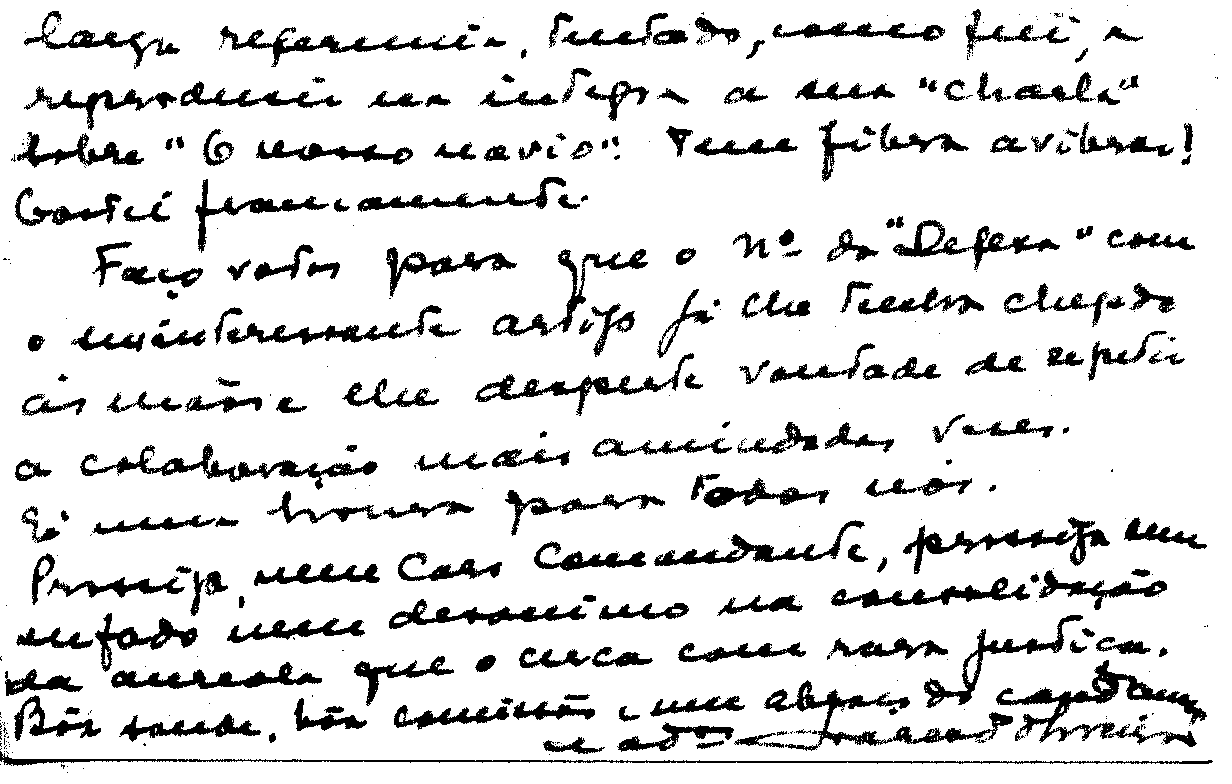 larga referencia, tentado, como fui, a
reproduzir na integra a sua "charla"
sobre "O nosso navio". Tem fibra a vibrar!
Gostei francamente.
Faço votos para que o nº da "Defesa" com
o seu interessante artigo já lhe tenha chegado
ás mãos e lhe desperte vontade de repetir
a colaboração mais amiudadas vezes.
É uma honra para todos nós.
Prosiga, meu caro Comandante, prosiga sem
enfado nem desanimo na consolidação
da aureola que o cerca com rara justiça.
Bôa saude, bôa comissão e um abraço do camdª amº
e adºr